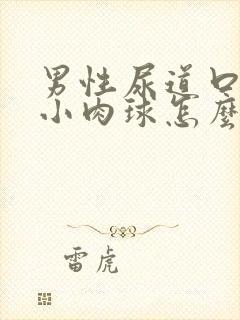 男性尿道口
小肉球怎麼
雷虎